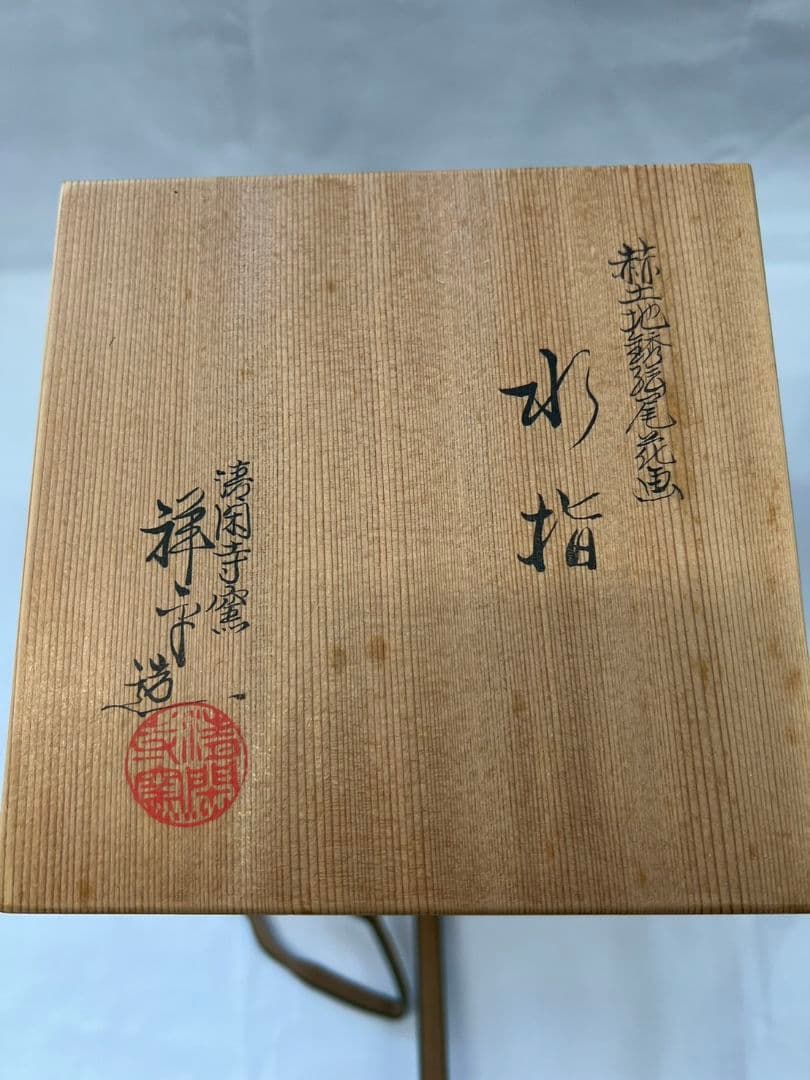 赫土地銹絵尾花画
水指
清閑寺窯
祥平造
清閑寺窯